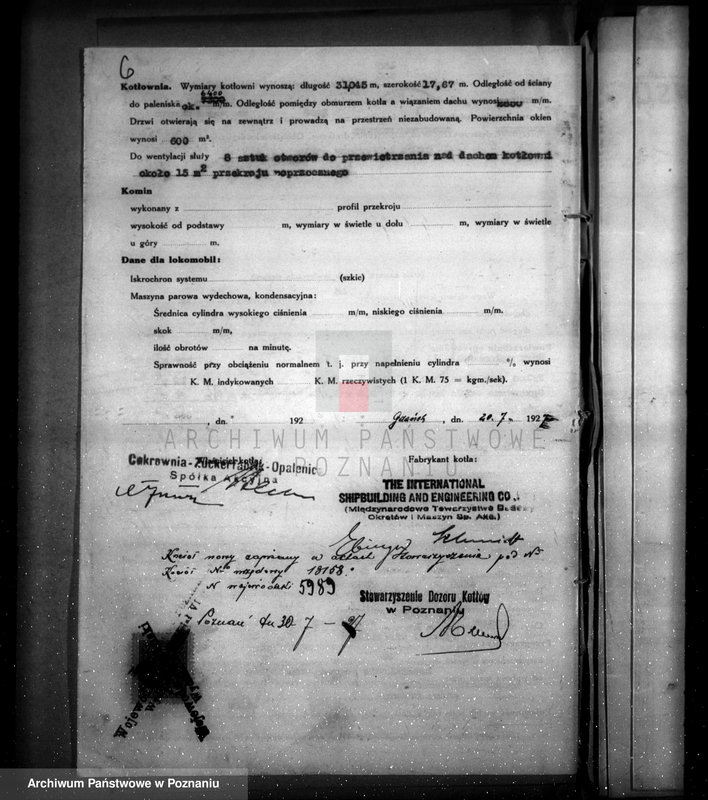 6
Kotłownia. Wymiary kotłowni wynoszą: długość 31,045 m, szerokość 17,67 m. Odległość od ściany
do paleniska ok. 6400 m/m. Odległość pomiędzy obmurzem kotła a wiązaniem dachu wynosi m/m.
Drzwi otwierają się na zewnątrz i prowadzą na przestrzeń niezabudowaną. Powierzchnia okien
wynosi 600 m².
Do wentylacji służy 8 sztuk otworów do przewietrzania nad dachem kotłowni
około 15 m² przekroju poprzecznego
Komin
wykonany z profil przekroju
wysokość od podstawy m, wymiary w świetle u dołu m, wymiary w świetle
u góry m.
Dane dla lokomobil:
Iskrochron systemu (szkic)
Maszyna parowa wydechowa, kondensacyjna:
Średnica cylindra wysokiego ciśnienia m/m, niskiego ciśnienia m/m.
skok m/m,
ilość obrotów na minutę.
Sprawność przy obciążeniu normalnem t. j. przy napełnieniu cylindra % wynosi
K. M. indykowanych K. M. rzeczywistych (1 K. M. 75 = kgm./sek).
, dn. 192 Gdańsk, dn. 20.7. 192
ARCHIWUM PAŃSTWOWE
W POZNANIU
Fabrykant kotła:
Cukrownia-Zuckerfabrik-Opalenica
Spółka Akcyjna
THE INTERNATIONAL
SHIPBUILDING AND ENGINEERING CO.
(Międzynarodowe Towarzystwo Budowy
Okrętów i Maszyn Sp. Akc.)
Schmidt
Kocioł nowy zapisany w aktach Stowarzyszenia pod №
Kocioł 18158.
N 5989
Stowarzyszenie Dozoru Kotłów
w Poznaniu
Poznań dn 30-7-27
Archiwum Państwowe w Poznaniu